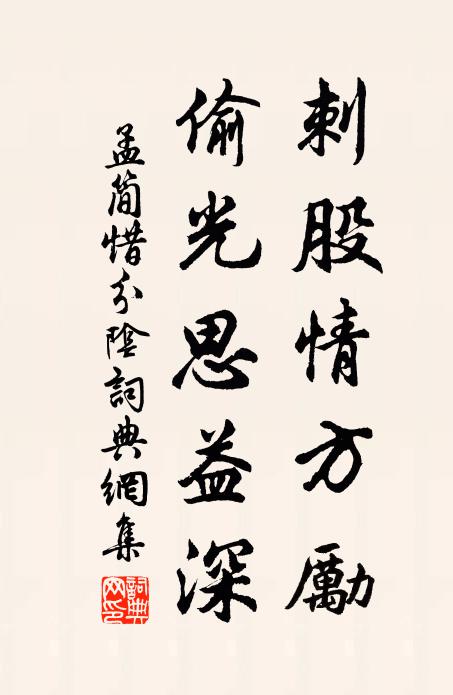 刺股情方勵
偷光思益深
孟簡惜分陰詞典網集
詞典
网印